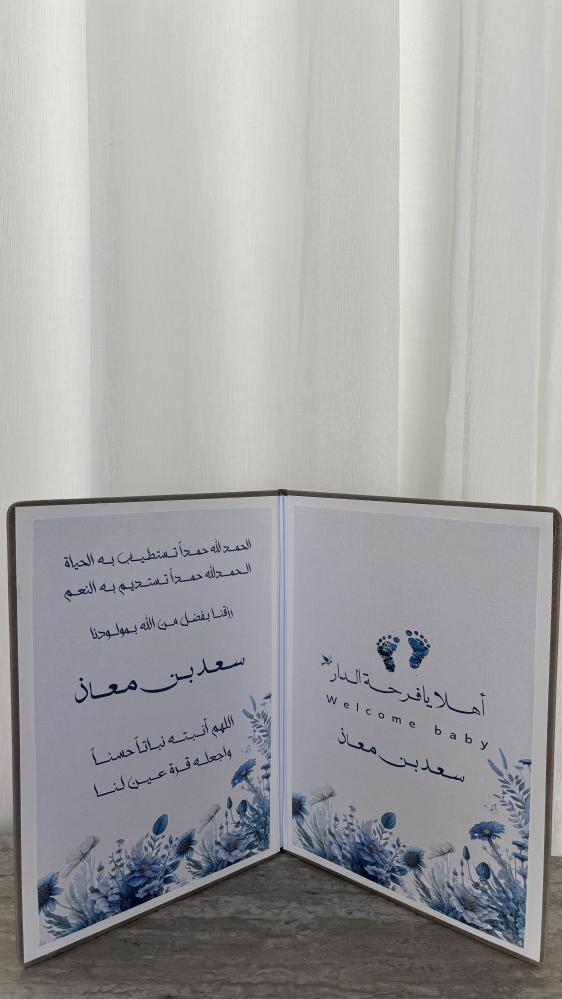 أهلا يا فرحة الدار
Welcome baby
سعد بن معاذ
الحمدلله حمداً تستطيب به الحياة
الحمدلله حمداً تستديم به النعم
رزقنا بفضل من الله بمولودنا
سعد بن معاذ
اللهم أنبته نباتاً حسناً
واجعله قرة عين لنا